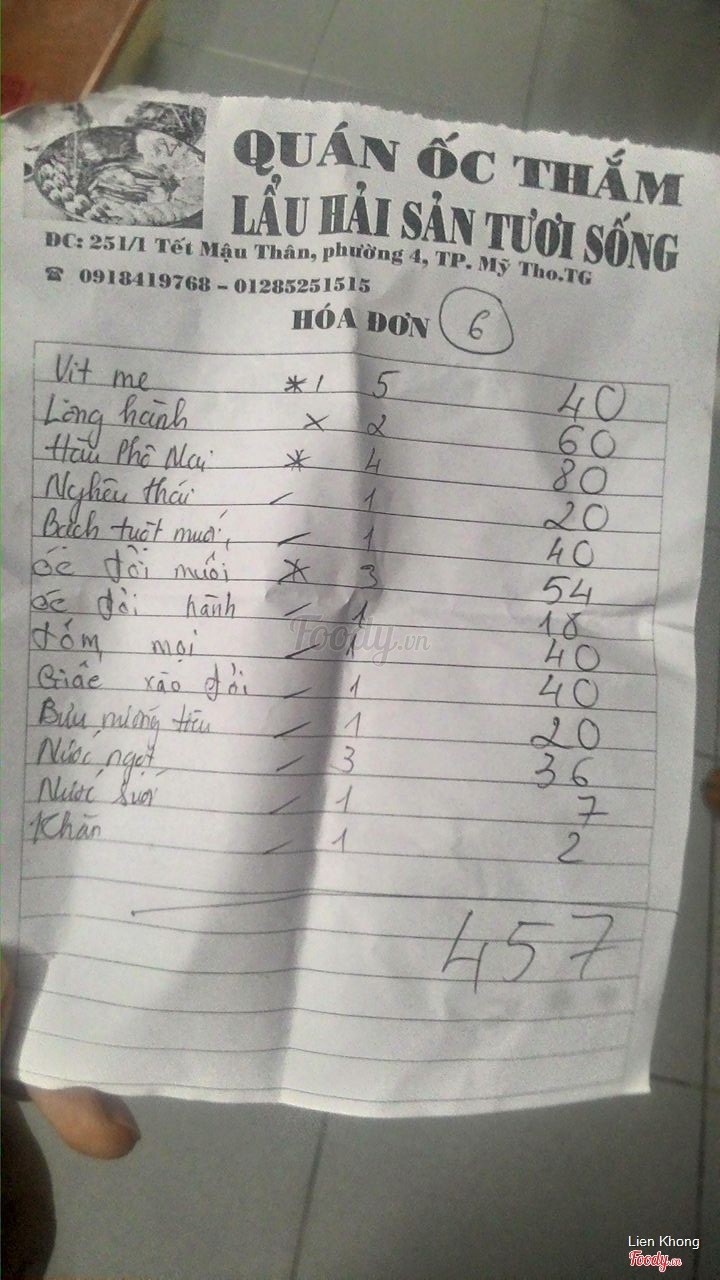 QUÁN ỐC THẮM
LẨU HẢI SẢN TƯƠI SỐNG
ĐC: 251/1 Tết Mậu Thân, phường 4, TP. Mỹ Tho.TG
☎ 0918419768 - 01285251515
HÓA ĐƠN 6
Vit me 5 40
Lòng hành 2 60
Hàu Phô Mai 4 80
Nghêu thái 1 20
Bach tuột muối 1 40
ốc đồi muối 3 54
ốc đồi hành 1 18
mọi 1 40
xào 1 40
nướng tiêu 1 20
Nước ngọt 3 36
Nước suối 1 7
Khăn 1 2
457
Foody.vn
Lien Khong
Foody.vn